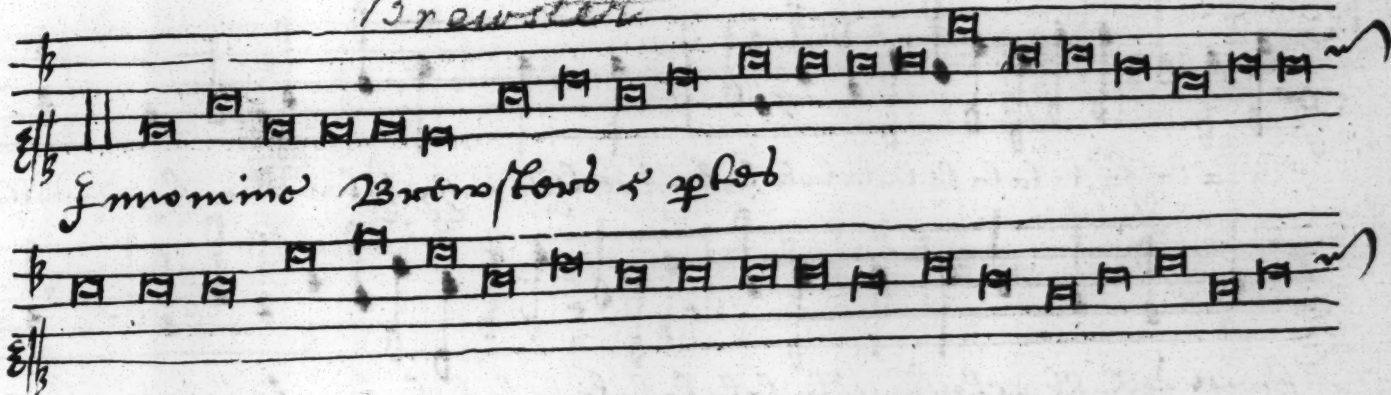 Brewster
Innomine Brewsters 5 ptes